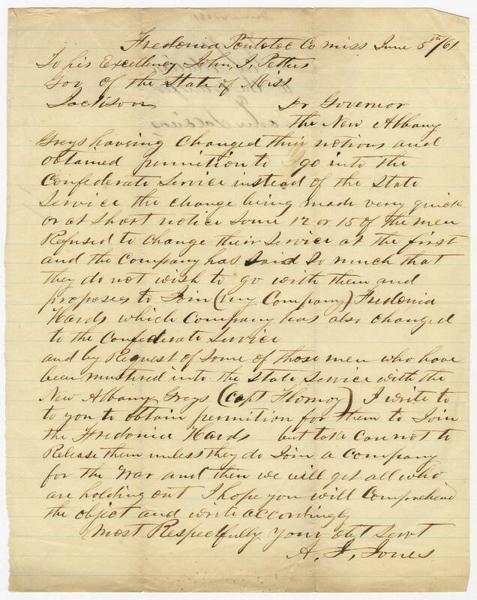 Fredonia Pontotoc Co miss June 5th/61
To his Excellency John, J, Pettus
Gov of the State of Miss
Jackson Dr Governor
The New Albany
Greys having changed their notions and
obtained permition to go into the
Confederate Service instead of the State
Service the change being made very quick
or at short notice Some 12 or 15 of the men
Refused to change their Service at the first
and the Company has said so much that
they do not wish to go with them and
proposes to Join (my Company) Fredonia
Hards which Company has also changed
to the Confederate Service
and by Request of Some of those men who have
been mustered into the State Service with the
New Albany Greys (Capt ) I write to
to you to obtain permition for them to Join
the Fredonia Hards but to cannot to
Release them unless they do Join a Company
for the War and then we will get all who
are holding out I hope you will Comprehend
the object and write accordingly
Most Respectfully Your Obt Servt
A. J, Jones